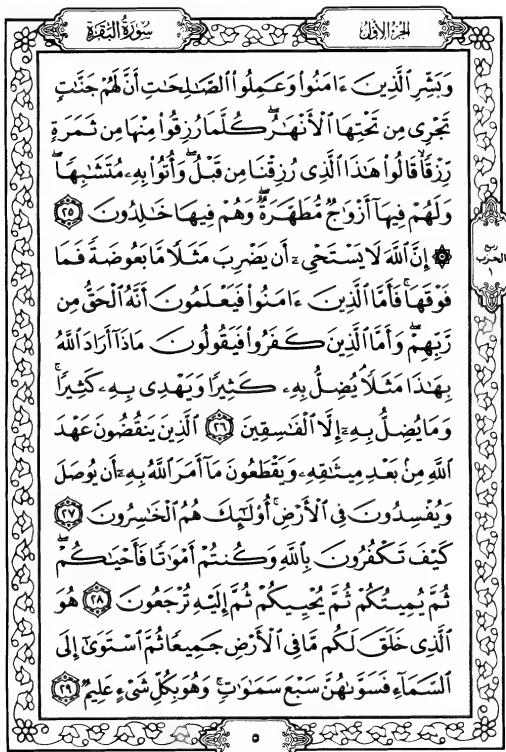 سُورَةُ البَقَرَةِ
الجُزْءُ الأَوَّلُ
وَبَشِّرِ الَّذِينَ ءَامَنُوا وَعَمِلُوا الصَّـٰلِحَـٰتِ أَنَّ لَهُمْ جَنَّـٰتٍ
تَجْرِى مِن تَحْتِهَا الْأَنْهَـٰرُ ۖ كُلَّمَا رُزِقُوا مِنْهَا مِن ثَمَرَةٍ
رِّزْقًا ۙ قَالُوا هَـٰذَا الَّذِى رُزِقْنَا مِن قَبْلُ ۖ وَأُتُوا بِهِۦ مُتَشَـٰبِهًا ۖ
وَلَهُمْ فِيهَآ أَزْوَٰجٌ مُّطَهَّرَةٌ ۖ وَهُمْ فِيهَا خَـٰلِدُونَ ٢٥
۞ إِنَّ اللَّهَ لَا يَسْتَحْىِۦٓ أَن يَضْرِبَ مَثَلًا مَّا بَعُوضَةً فَمَا
فَوْقَهَا ۚ فَأَمَّا الَّذِينَ ءَامَنُوا فَيَعْلَمُونَ أَنَّهُ الْحَقُّ مِن
رَّبِّهِمْ ۖ وَأَمَّا الَّذِينَ كَفَرُوا فَيَقُولُونَ مَاذَآ أَرَادَ اللَّهُ
بِهَـٰذَا مَثَلًا ۘ يُضِلُّ بِهِۦ كَثِيرًا وَيَهْدِى بِهِۦ كَثِيرًا ۚ
وَمَا يُضِلُّ بِهِۦٓ إِلَّا الْفَـٰسِقِينَ ٢٦ الَّذِينَ يَنقُضُونَ عَهْدَ
اللَّهِ مِنۢ بَعْدِ مِيثَـٰقِهِۦ وَيَقْطَعُونَ مَآ أَمَرَ اللَّهُ بِهِۦٓ أَن يُوصَلَ
وَيُفْسِدُونَ فِى الْأَرْضِ ۚ أُولَـٰٓئِكَ هُمُ الْخَـٰسِرُونَ ٢٧
كَيْفَ تَكْفُرُونَ بِاللَّهِ وَكُنتُمْ أَمْوَٰتًا فَأَحْيَـٰكُمْ ۖ
ثُمَّ يُمِيتُكُمْ ثُمَّ يُحْيِيكُمْ ثُمَّ إِلَيْهِ تُرْجَعُونَ ٢٨ هُوَ
الَّذِى خَلَقَ لَكُم مَّا فِى الْأَرْضِ جَمِيعًا ثُمَّ اسْتَوَىٰٓ إِلَى
السَّمَآءِ فَسَوَّىٰهُنَّ سَبْعَ سَمَـٰوَٰتٍ ۚ وَهُوَ بِكُلِّ شَىْءٍ عَلِيمٌ ٢٩
ربع
الحزب
١
٥